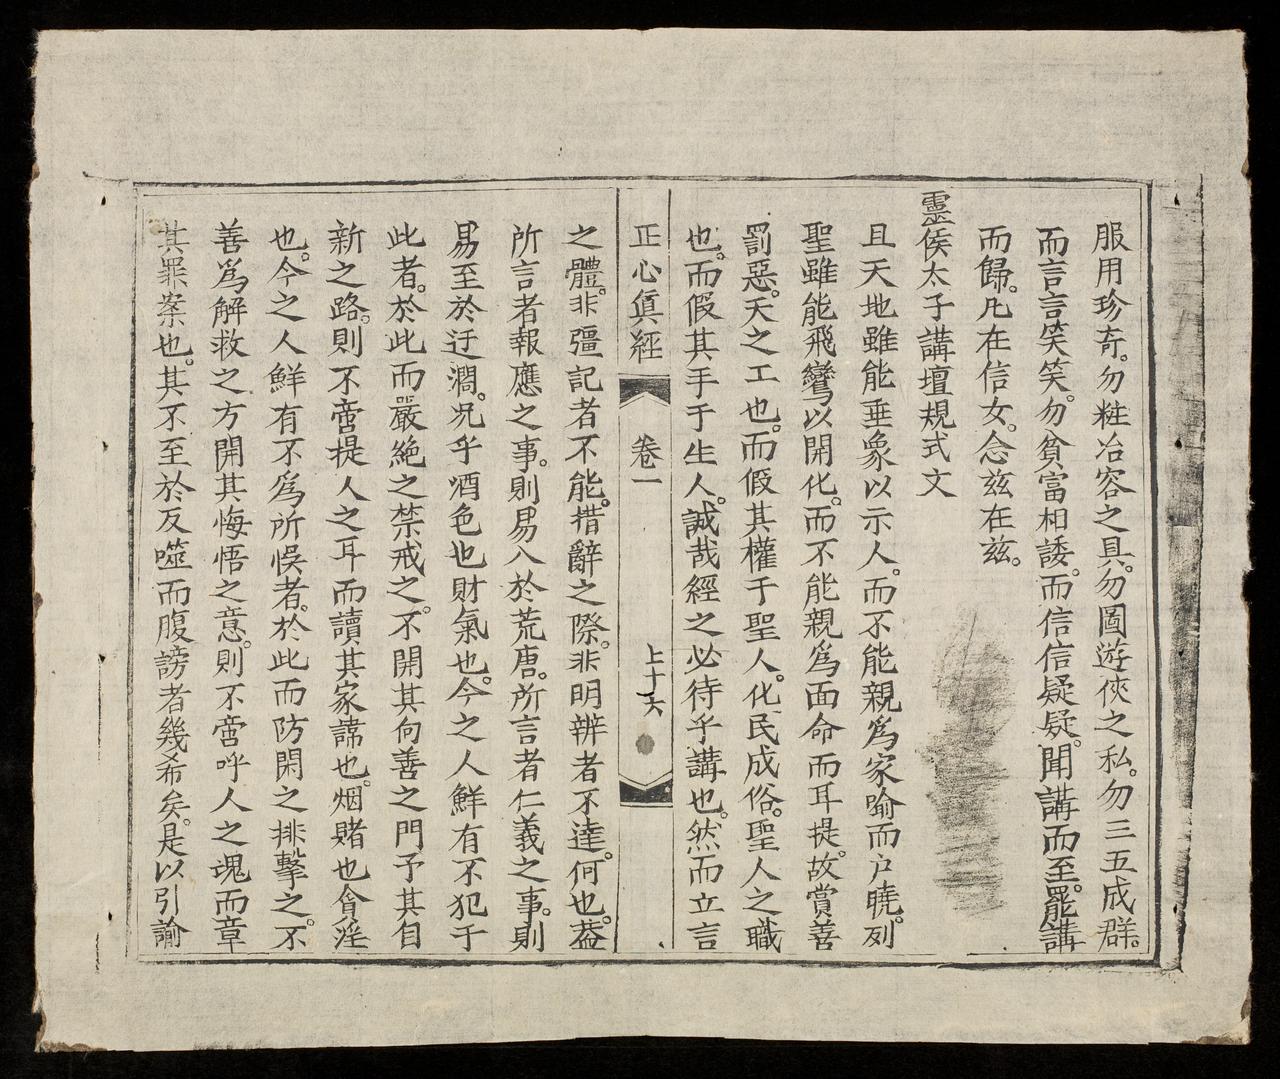 服用珍奇。勿粧冶容之具。勿圖遊俠之私。勿三五成群。
而言言笑笑。勿貧富相諉。而信信疑疑。聞講而至。罷講
而歸。凡在信女。念茲在茲。
靈侯太子講壇規式文
且天地雖能垂象以示人。而不能親爲家喻而户曉。列
聖雖能飛鸞以開化。而不能親爲面命而耳提。故賞善
罰惡。天之工也。而假其權于聖人。化民成俗。聖人之職
也。而假其手于生人。誠哉經之必待乎講也。然而立言
正心眞經 卷一 上十六
之體。非彊記者不能。措辭之際。非明辨者不達。何也。葢
所言者報應之事。則易入於荒唐。所言者仁義之事。則
易至於迂濶。况乎酒色也財氣也。今之人鮮有不犯于
此者。於此而嚴絶之禁戒之。不開其向善之門予其自
新之路。則不啻提人之耳而讀其家諱也。烟賭也會淫
也。今之人鮮有不爲所悞者。於此而防閑之排擊之。不
善爲解救之方開其悔悟之意。則不啻呼人之魂而章
其罪案也。其不至於反噬而腹謗者幾希矣。是以引諭